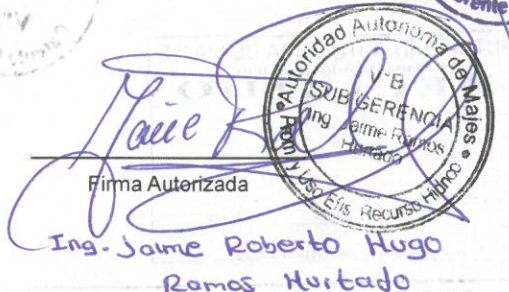 Gerente
Autoridad Autonoma de Majes
V°B
SUB GERENCIA
Ing Jaime Ramos
Hurtado
Prom y Uso Efis Recurso Hidrico
Firma Autorizada
Ing. Jaime Roberto Hugo
Ramos Hurtado